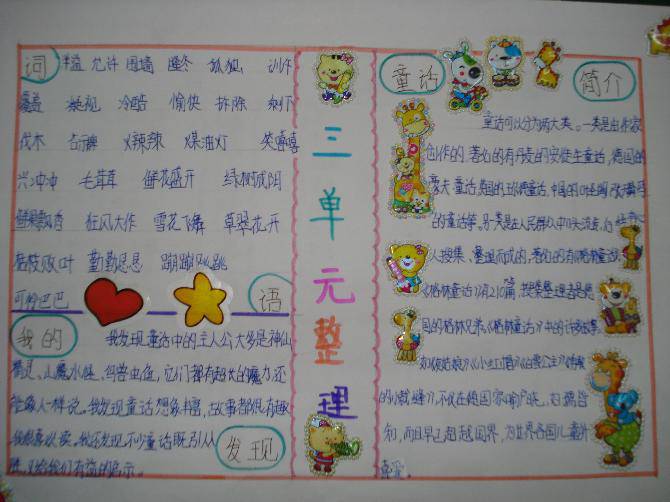 词
允许 围墙 隆冬 孤狐 训斥
覆盖 凝视 冷酷 愉快 拆除 剩下
伐木 告示牌 火辣辣 煤油灯 笑嘻嘻
兴冲冲 毛茸茸 鲜花盛开 绿树成阴
鲜果飘香 狂风大作 雪花飞舞 草翠花开
枯枝败叶 勤勤恳恳 蹦蹦跳跳
可怜巴巴
语
我的
我发现童话中的主人公大多是神仙
精灵、山魔水怪、鸟兽虫鱼，它们都有超大的魔力，还
能像人一样说。我发现童话想象丰富，故事都很有趣
我很喜欢读。我还发现不少童话既引人
发现
又给我们有益的启示。
三单元整理
童话
简介
童话可以分为两大类。一类是由作家
创作的，著名的有丹麦的安徒生童话，德国的
豪夫童话，英国的王尔德童话，中国的叶圣陶、张天翼
的童话等，另一类是在人民群众中口头流传，后经
人搜集、整理而成的，著名的有《格林童话》
《格林童话》有210篇，搜集整理者是德
国的格林兄弟。《格林童话》中的许多故事
如《灰姑娘》《小红帽》《白雪公主》《勇敢
的小裁缝》，不仅在德国家喻户晓，妇孺皆
知，而且早已超越国界，为世界各国儿童所
喜爱。